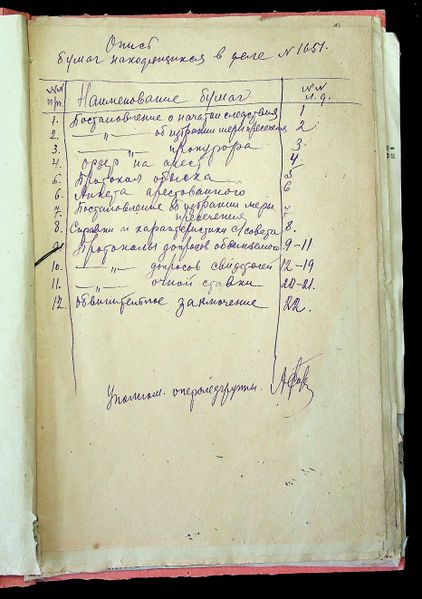 Опись
бумаг находящихся в деле № 1651.
№№ п/п. Наименование бумаг №№ л.д.
1. Постановление о начатии следствия 1
2. —"— об избрании меры пресечения 2
3. —"— прокурора 3.
4. Ордер на арест 4
5. Протокол обыска 5
6. Анкета арестованного 6
7. Постановление об избрании меры 7
пресечения
8. Справки и характеристики с/совета 8.
9. Протоколы допросов обвиняемого 9-11
10. —"— допросов свидетелей 12-19
11. —"— очной ставки 20-21.
12. Обвинительное заключение 22.
Уполном. оперследгруппы.